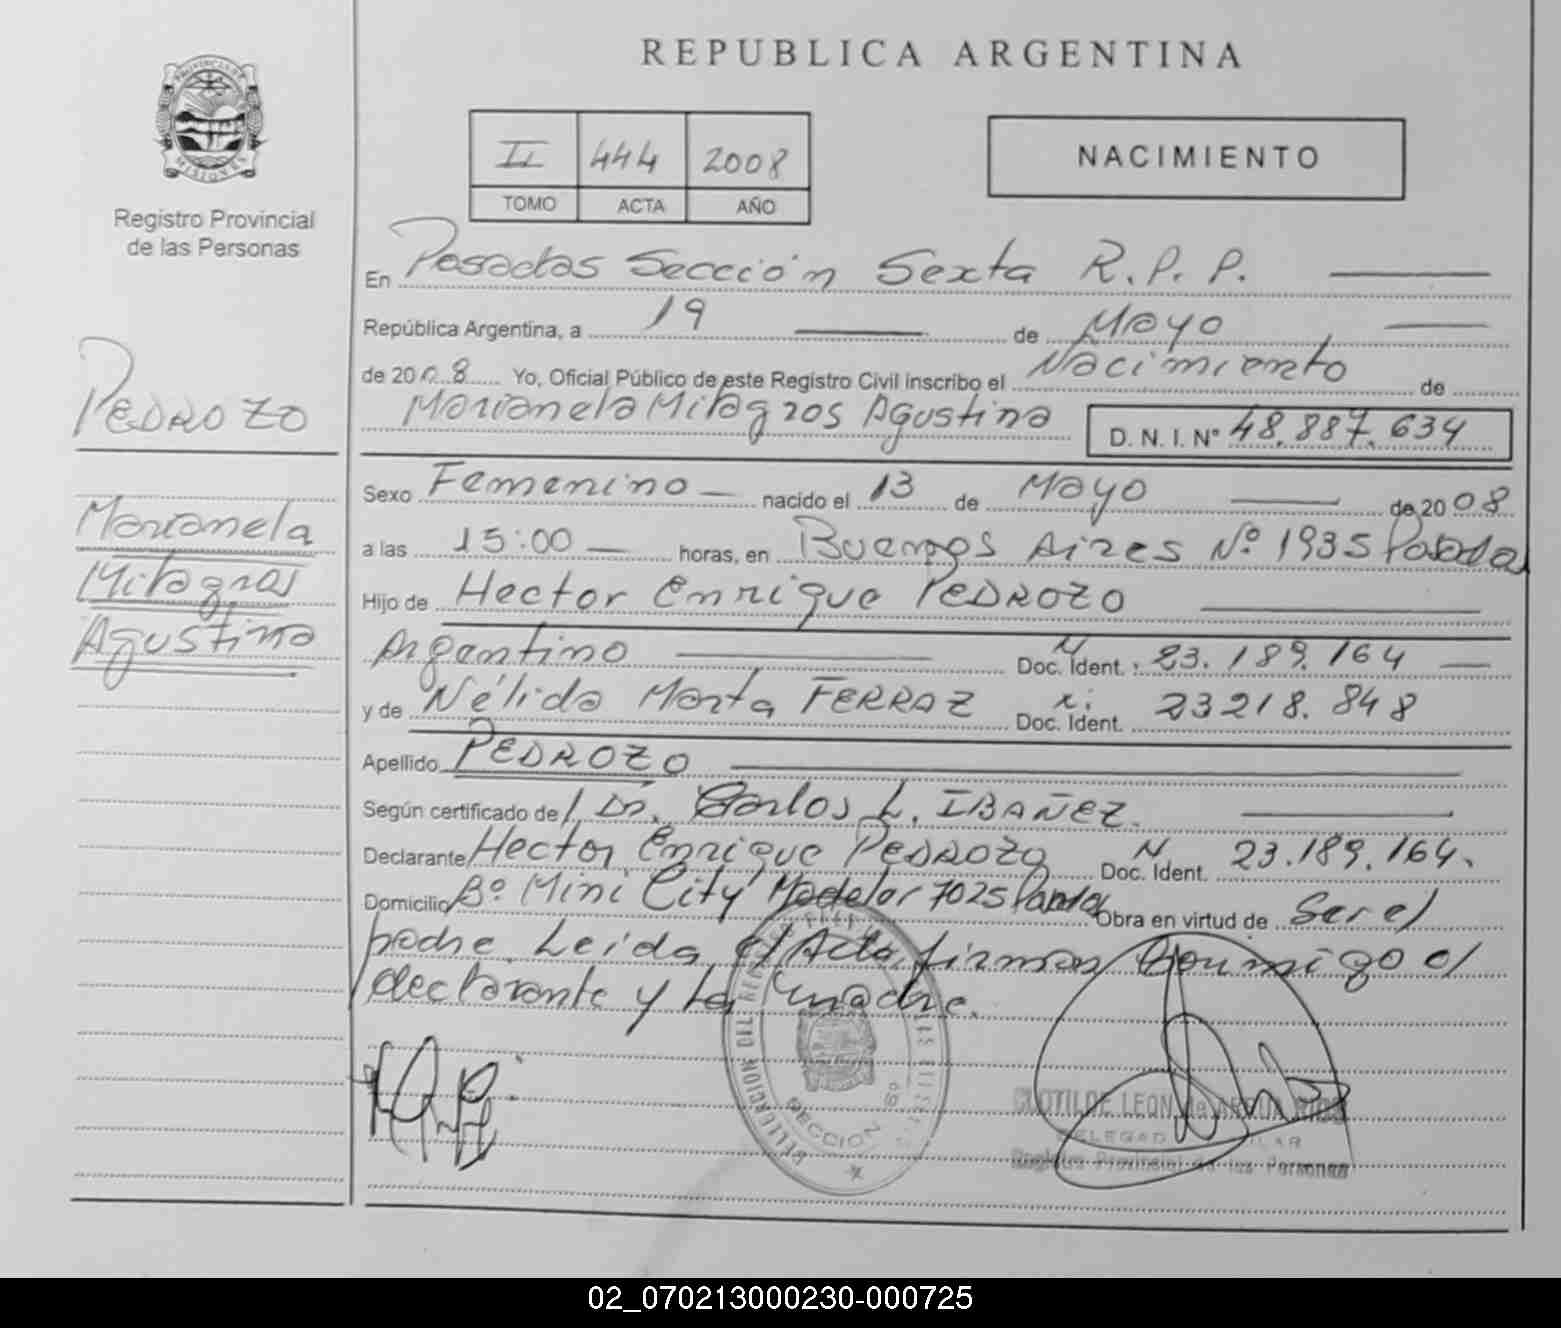 REPUBLICA ARGENTINA
PROVINCIA DE
MISIONES
Registro Provincial
de las Personas
II 444 2008
TOMO ACTA AÑO
NACIMIENTO
En Posadas Sección Sexta R.P.P.
República Argentina, a 19 de Mayo
de 2008 Yo, Oficial Público de este Registro Civil inscribo el Nacimiento de
Marianela Milagros Agustina D.N.I. Nº 48.887.634
PEDROZO
Marianela
Milagros
Agustina
Sexo Femenino nacido el 13 de Mayo de 2008
a las 15:00 horas, en Buenos Aires Nº 1935 Posadas
Hijo de Hector Enrique PEDROZO
Argentino Doc. Ident. N: 23.189.164
y de Nélida Marta FERRAZ Doc. Ident. 23218.848
Apellido PEDROZO
Según certificado de l. Dr. Carlos L. IBAÑEZ.
Declarante Hector Enrique PEDROZO Doc. Ident. N 23.189.164.
Domicilio Bº Mini City Modelor 7025 Obra en virtud de Ser el
padre. Leida el Acta, firman conmigo el
declarante y la madre.
SECCION 6º
CLOTILDE LEON de
Registro Provincial de las Personas
02_070213000230-000725